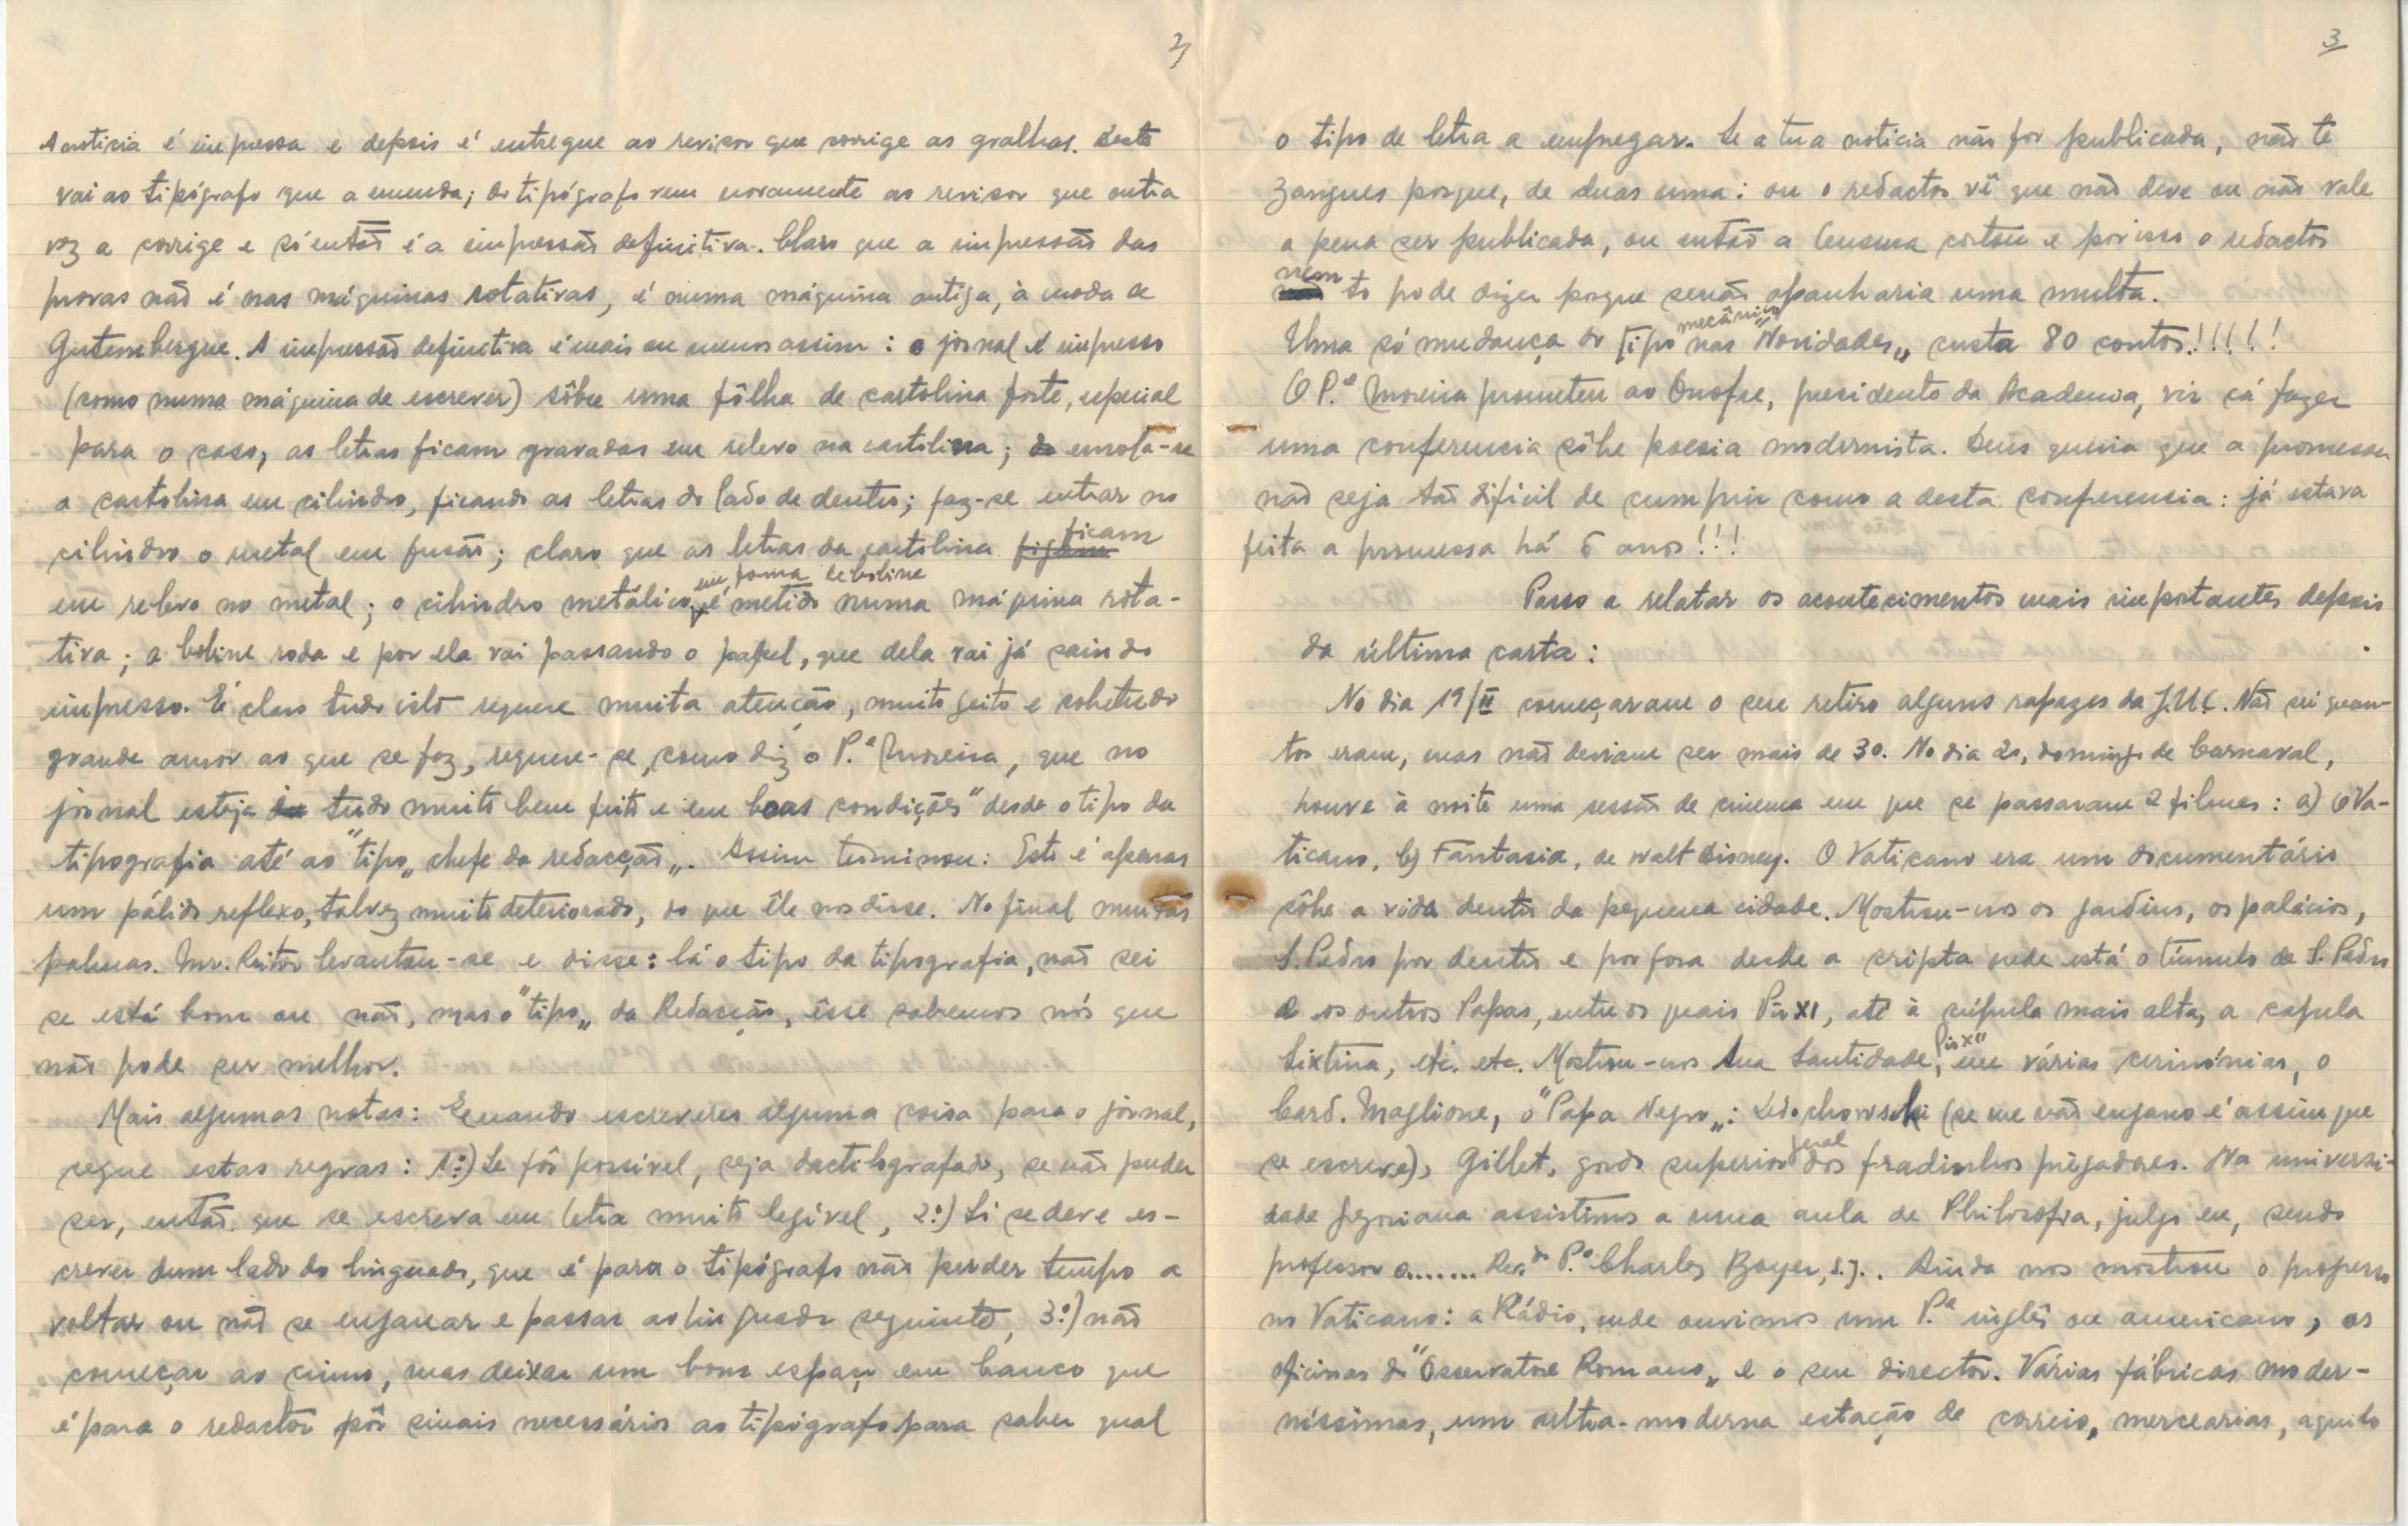 2)
A noticia é impressa e depois é entregue ao revisor que corrige as gralhas. deste
vai ao tipógrafo que a emenda; do tipógrafo vem novamente ao revisor que outra
vez a corrige e só então é a impressão definitiva. Claro que a impressão das
provas não é nas máquinas rotativas, é numa máquina antiga, à moda de
Gutembergue. A impressão definitiva é mais ou menos assim: o jornal é impresso
(como numa máquina de escrever) sôbre uma fôlha de cartolina forte, especial
para o caso, as letras ficam gravadas em relevo na cartolina; enrola-se
a cartolina em cilindro, ficando as letras do lado de dentro; faz-se entrar no
cilindro o metal em fusão; claro que as letras da cartolina ficam
em relevo no metal; o cilindro metálico, em forma de bobine é metido numa máquina rota-
tiva; a bobine roda e por ela vai passando o papel, que dela vai já saindo
impresso. É claro tudo isto requere muita atenção, muito geito e sobretudo
grande amor ao que se faz, requere-se, como diz o P.e Moreira, que no
jornal esteja tudo muito bem feito e em boas condições "desde o tipo da
tipografia até ao "tipo„ chefe da redacção„. Assim terminou: Este é apenas
um pálido reflexo, talvez muito deteriorado, do que êle nos disse. No final muitas
palmas. Mr. Reitor levantou-se e disse: lá o tipo da tipografia, não sei
se está bom ou não, mas o "tipo„ da Redacção, êsse sabemos nós que
não pode ser melhor.
Mais algumas notas: Quando escreveres alguma coisa para o jornal,
segue estas regras: 1.º) Se fôr possivel, seja dactilografado, se não puder
ser, então que se escreva em letra muito legível, 2.º) Só se deve es-
crever dum lado do linguado, que é para o tipógrafo não perder tempo a
voltar ou não se enganar e passar ao linguado seguinte, 3.º) não
começar ao cimo, mas deixar um bom espaço em branco que
é para o redactor pôr sinais necessários ao tipógrafo para saber qual
3
o tipo de letra a empregar. Se a tua noticia não for publicada, não te
zangues porque, de duas uma: ou o redactor vê que não deve ou não vale
a pena ser publicada, ou então a Censura cortou e por isso o redactor
nem to pode dizer porque senão apanharia uma multa.
Uma só mudança do tipo mecânico nas "Novidades„ custa 80 contos!!!!!
O P.e Moreira prometeu ao Onofre, presidente da Academia, vir cá fazer
uma conferencia sôbre poesia modernista. Deus queira que a promessa
não seja tão dificil de cumprir como a desta conferencia: já estava
feita a promessa há 6 anos!!!
Passo a relatar os acontecimentos mais importantes depois
da última carta:
No dia 19/II começaram o seu retiro alguns rapazes da J.U.C. Não sei quan-
tos eram, mas não deviam ser mais de 30. No dia 20, domingo de Carnaval,
houve à noite uma sessão de cinema em que se passaram 2 filmes: a) O Va-
ticano, b) Fantasia, de Walt Disney. O Vaticano era um documentário
sôbre a vida dentro da pequena cidade. Mostrou-nos os jardins, os palácios,
S. Pedro por dentro e por fora desde a cripta onde está o túmulo de S. Pedro
e os outros Papas, entre os quais Pio XI, até à cúpula mais alta, a capela
Sixtina, etc. etc. Mostrou-nos Sua Santidade, Pio XII em várias cerimónias, o
Card. Maglione, o "Papa Negro„: Ledochowski (se me não engano é assim que
se escreve), Gillet, gordo superior geral dos fradinhos prègadores. Na universi-
dade gregoriana assistimos a uma aula de Philosofia, julgo eu, sendo
professor o....... Rev.do P.e Charles Boyer, S.J.. Ainda nos mostrou o progresso
no Vaticano: a Rádio, onde ouvimos um P.e inglês ou americano, as
oficinas do "Osservatore Romano„ e o seu director. Várias fábricas moder-
níssimas, um ultra-moderna estação de correio, mercearias, aquilo